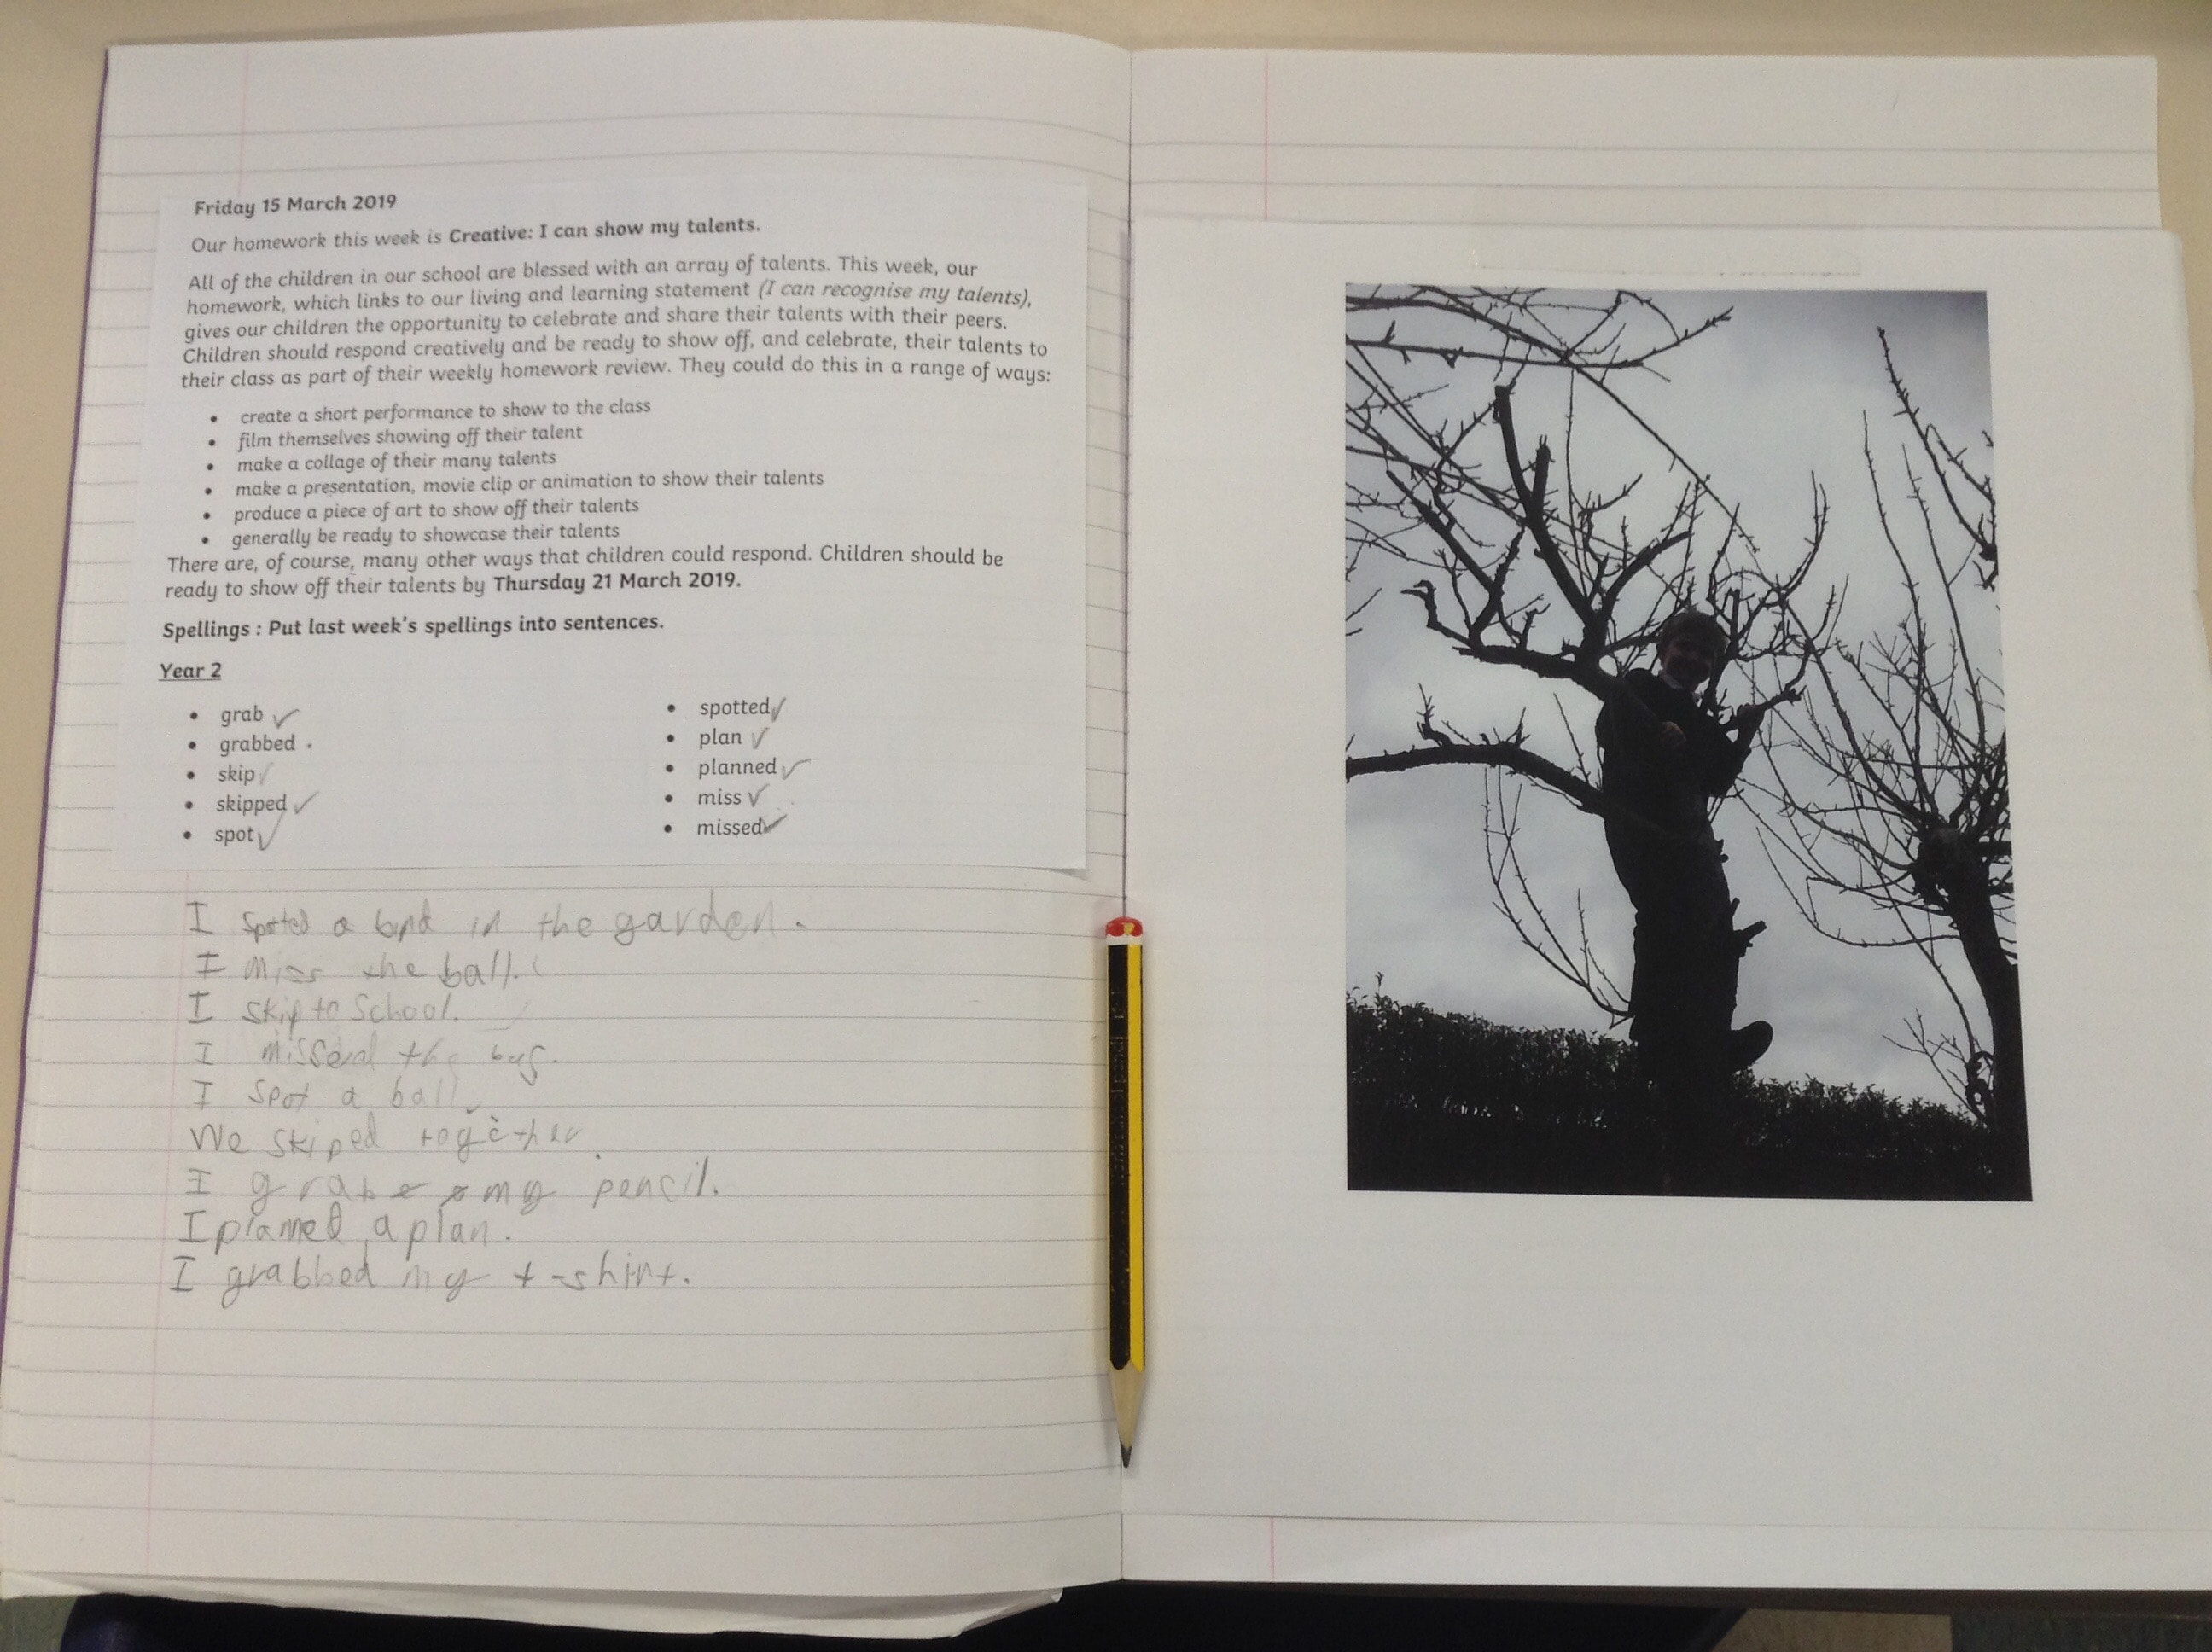 Friday 15 March 2019
Our homework this week is Creative: I can show my talents.
All of the children in our school are blessed with an array of talents. This week, our
homework, which links to our living and learning statement (I can recognise my talents),
gives our children the opportunity to celebrate and share their talents with their peers.
Children should respond creatively and be ready to show off, and celebrate, their talents to
their class as part of their weekly homework review. They could do this in a range of ways:
• create a short performance to show to the class
• film themselves showing off their talent
• make a collage of their many talents
• make a presentation, movie clip or animation to show their talents
• produce a piece of art to show off their talents
• generally be ready to showcase their talents
There are, of course, many other ways that children could respond. Children should be
ready to show off their talents by Thursday 21 March 2019.
Spellings : Put last week's spellings into sentences.
Year 2
• grab
• grabbed
• skip
• skipped
• spot
• spotted
• plan
• planned
• miss
• missed
I spotted a bird in the garden.
I miss the ball.
I skip to School.
I missed the bus.
I spot a ball.
We skiped together.
I grab my pencil.
I planned a plan.
I grabbed my t-shirt.